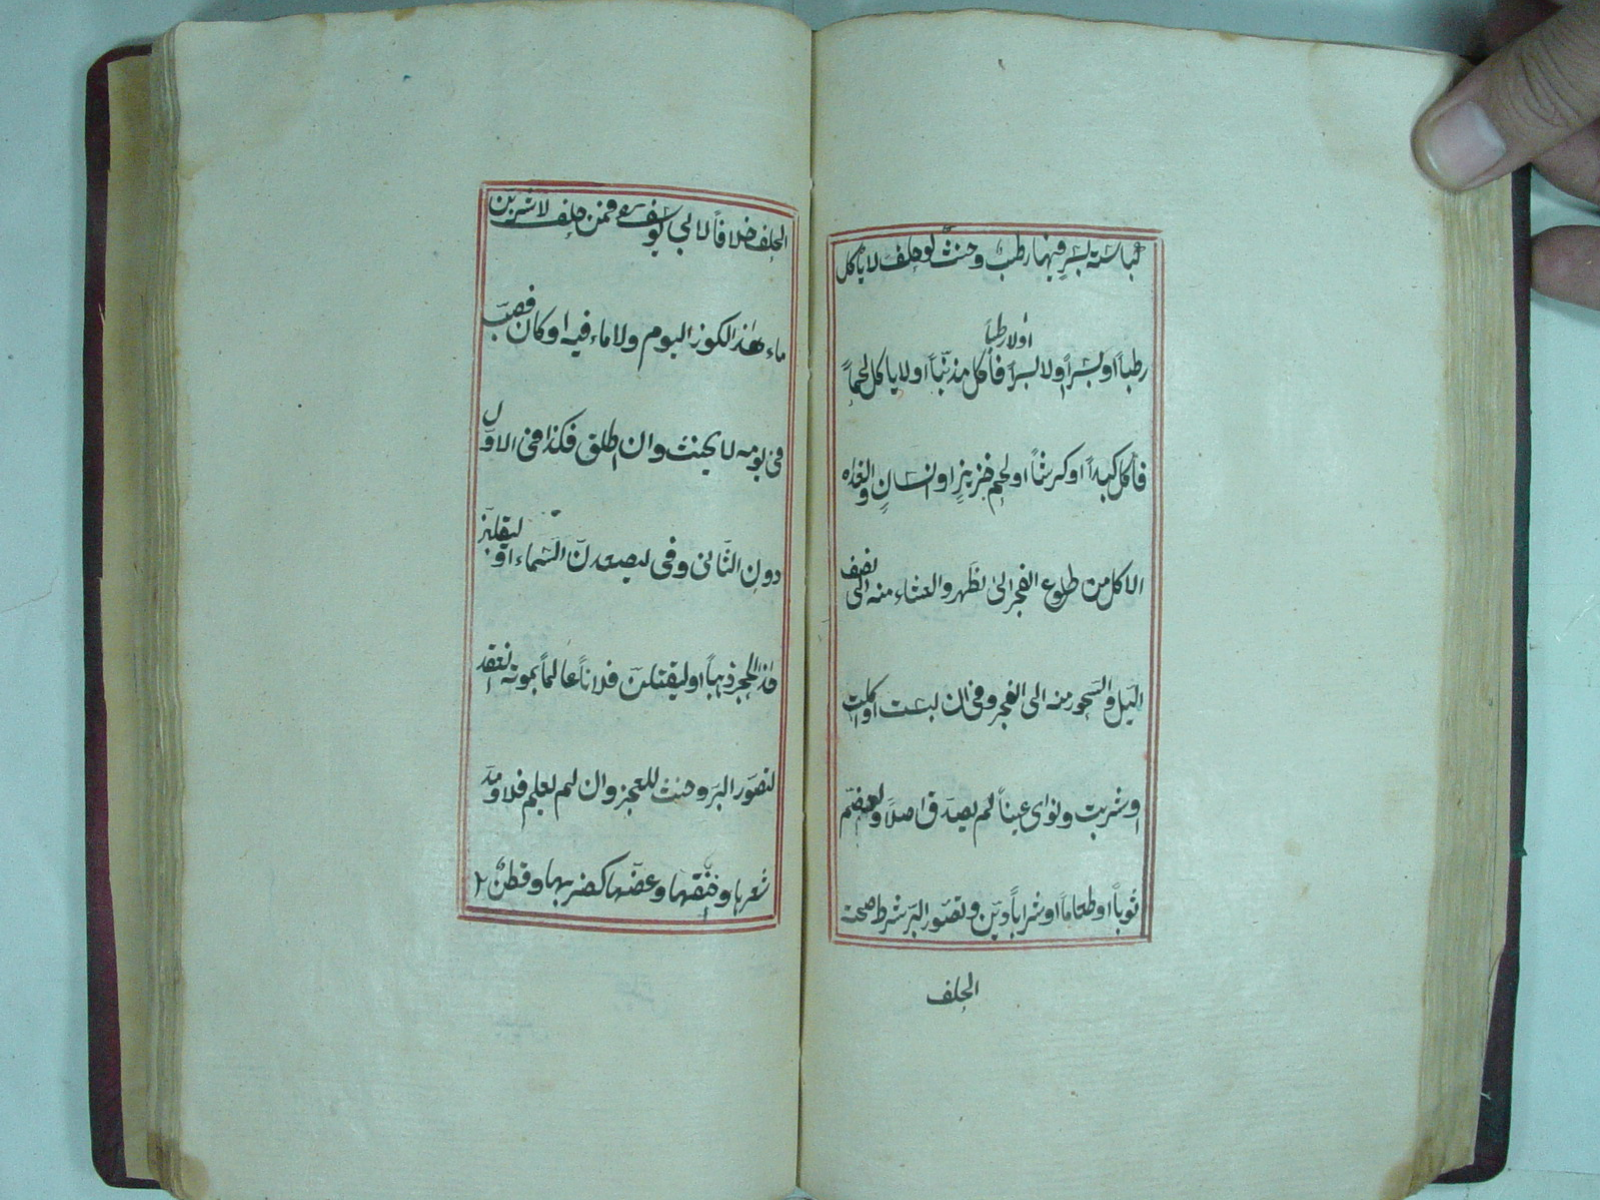 كباسة بسر فيها رطب وحنث لو حلف لا ياكل
اولا رطباً
رطباً او بسراً اولا بسراً فأكل مذنّباً او لا ياكل لحماً
فأكل كبداً او كرشاً او لحم خنزيرٍ او انسانٍ والغداء
الاكل من طلوع الفجر الى الظهر والعشاء منه الى نصف
اليل والسحور منه الى الفجر وفى ان لبست او اكلت
او شربت ونواى عيناً لم يصدق اصلاً ولو ضمّ
ثوباً او طعاماً او شراباً ديّن وتصوّر البرّ شرط صحة
الحلف
الحلف خلافاً لابي يوسف فمن حلف لاشربنّ
ماء هذا الكوز اليوم ولا ماء فيه او كان فصبّ
فى يومه لا يحنث وان اطلق فكذا فى الاوّل
دون الثانى وفى ليصعدنّ السّماء او ليقلبنّ
هذا الحجر ذهباً او ليقتلنّ فلاناً عالماً بموته انعقد
لتصوّر البرّ وحنث للعجز وان لم يعلم فلا ومدّ
شعرها وخنقها وعضّها كضربها وقطن